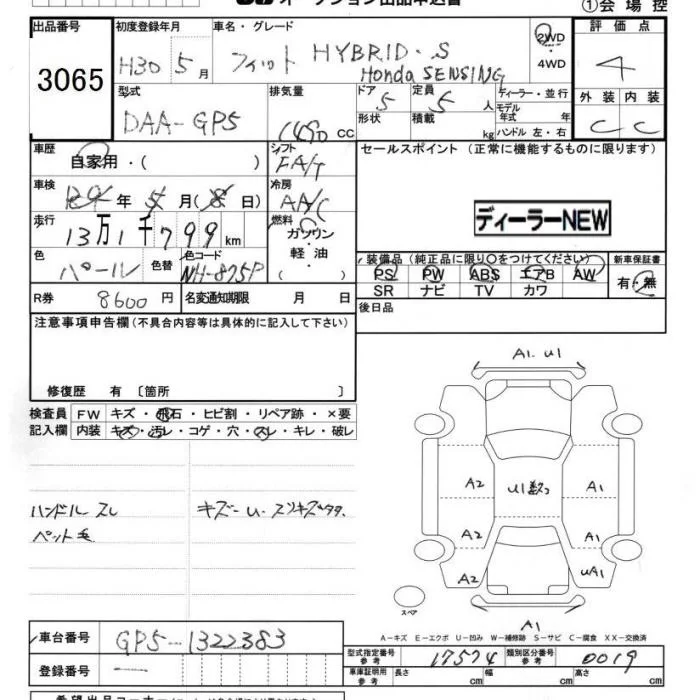 オークション出品申込書
①会場控
出品番号 3065
初度登録年月 H30 5月
車名・グレード フィット HYBRID・S Honda SENSING
2WD ・ 4WD
評価点 4
外装 内装
C C
型式 DAA-GP5
排気量 cc
ドア 5 定員 5 人
形状 積載 kg
ディーラー・並行
モデル年式 年
ハンドル 左・右
車歴 自家用・( )
シフト FA/T
セールスポイント (正常に機能するものに限ります)
車検 年 月( 日)
冷房 AA/C
ディーラーNEW
走行 13万1千799km
燃料 ガソリン・軽油・
色 パール 色替 色コード NH-875P
装備品(純正品に限り○をつけてください)
PS PW ABS エアB AW
SR ナビ TV カワ
新車保証書
有・無
R券 8600円 名変通知期限 月 日
後日品
注意事項申告欄(不具合内容等は具体的に記入して下さい)
修復歴 有 〔箇所 〕
検査員記入欄
FW キズ・飛石・ヒビ割・リペア跡・×要
内装 キズ・汚レ・コゲ・穴・スレ・キレ・破レ
ハンドル スレ
ペット毛
キズ-U.スリキズ
A1. U1
A2 A1
U1数コ
A2 A1
A2 UA1
A1
スペア
A-キズ E-エクボ U-凹み W-補修跡 S-サビ C-腐食 XX-交換済
車台番号 GP5-1322383
型式指定番号 参考 17574 類別区分番号 参考 0019
登録番号 —
車庫証明用 参考 長さ cm 幅 cm 高さ cm
希望出品コーナー